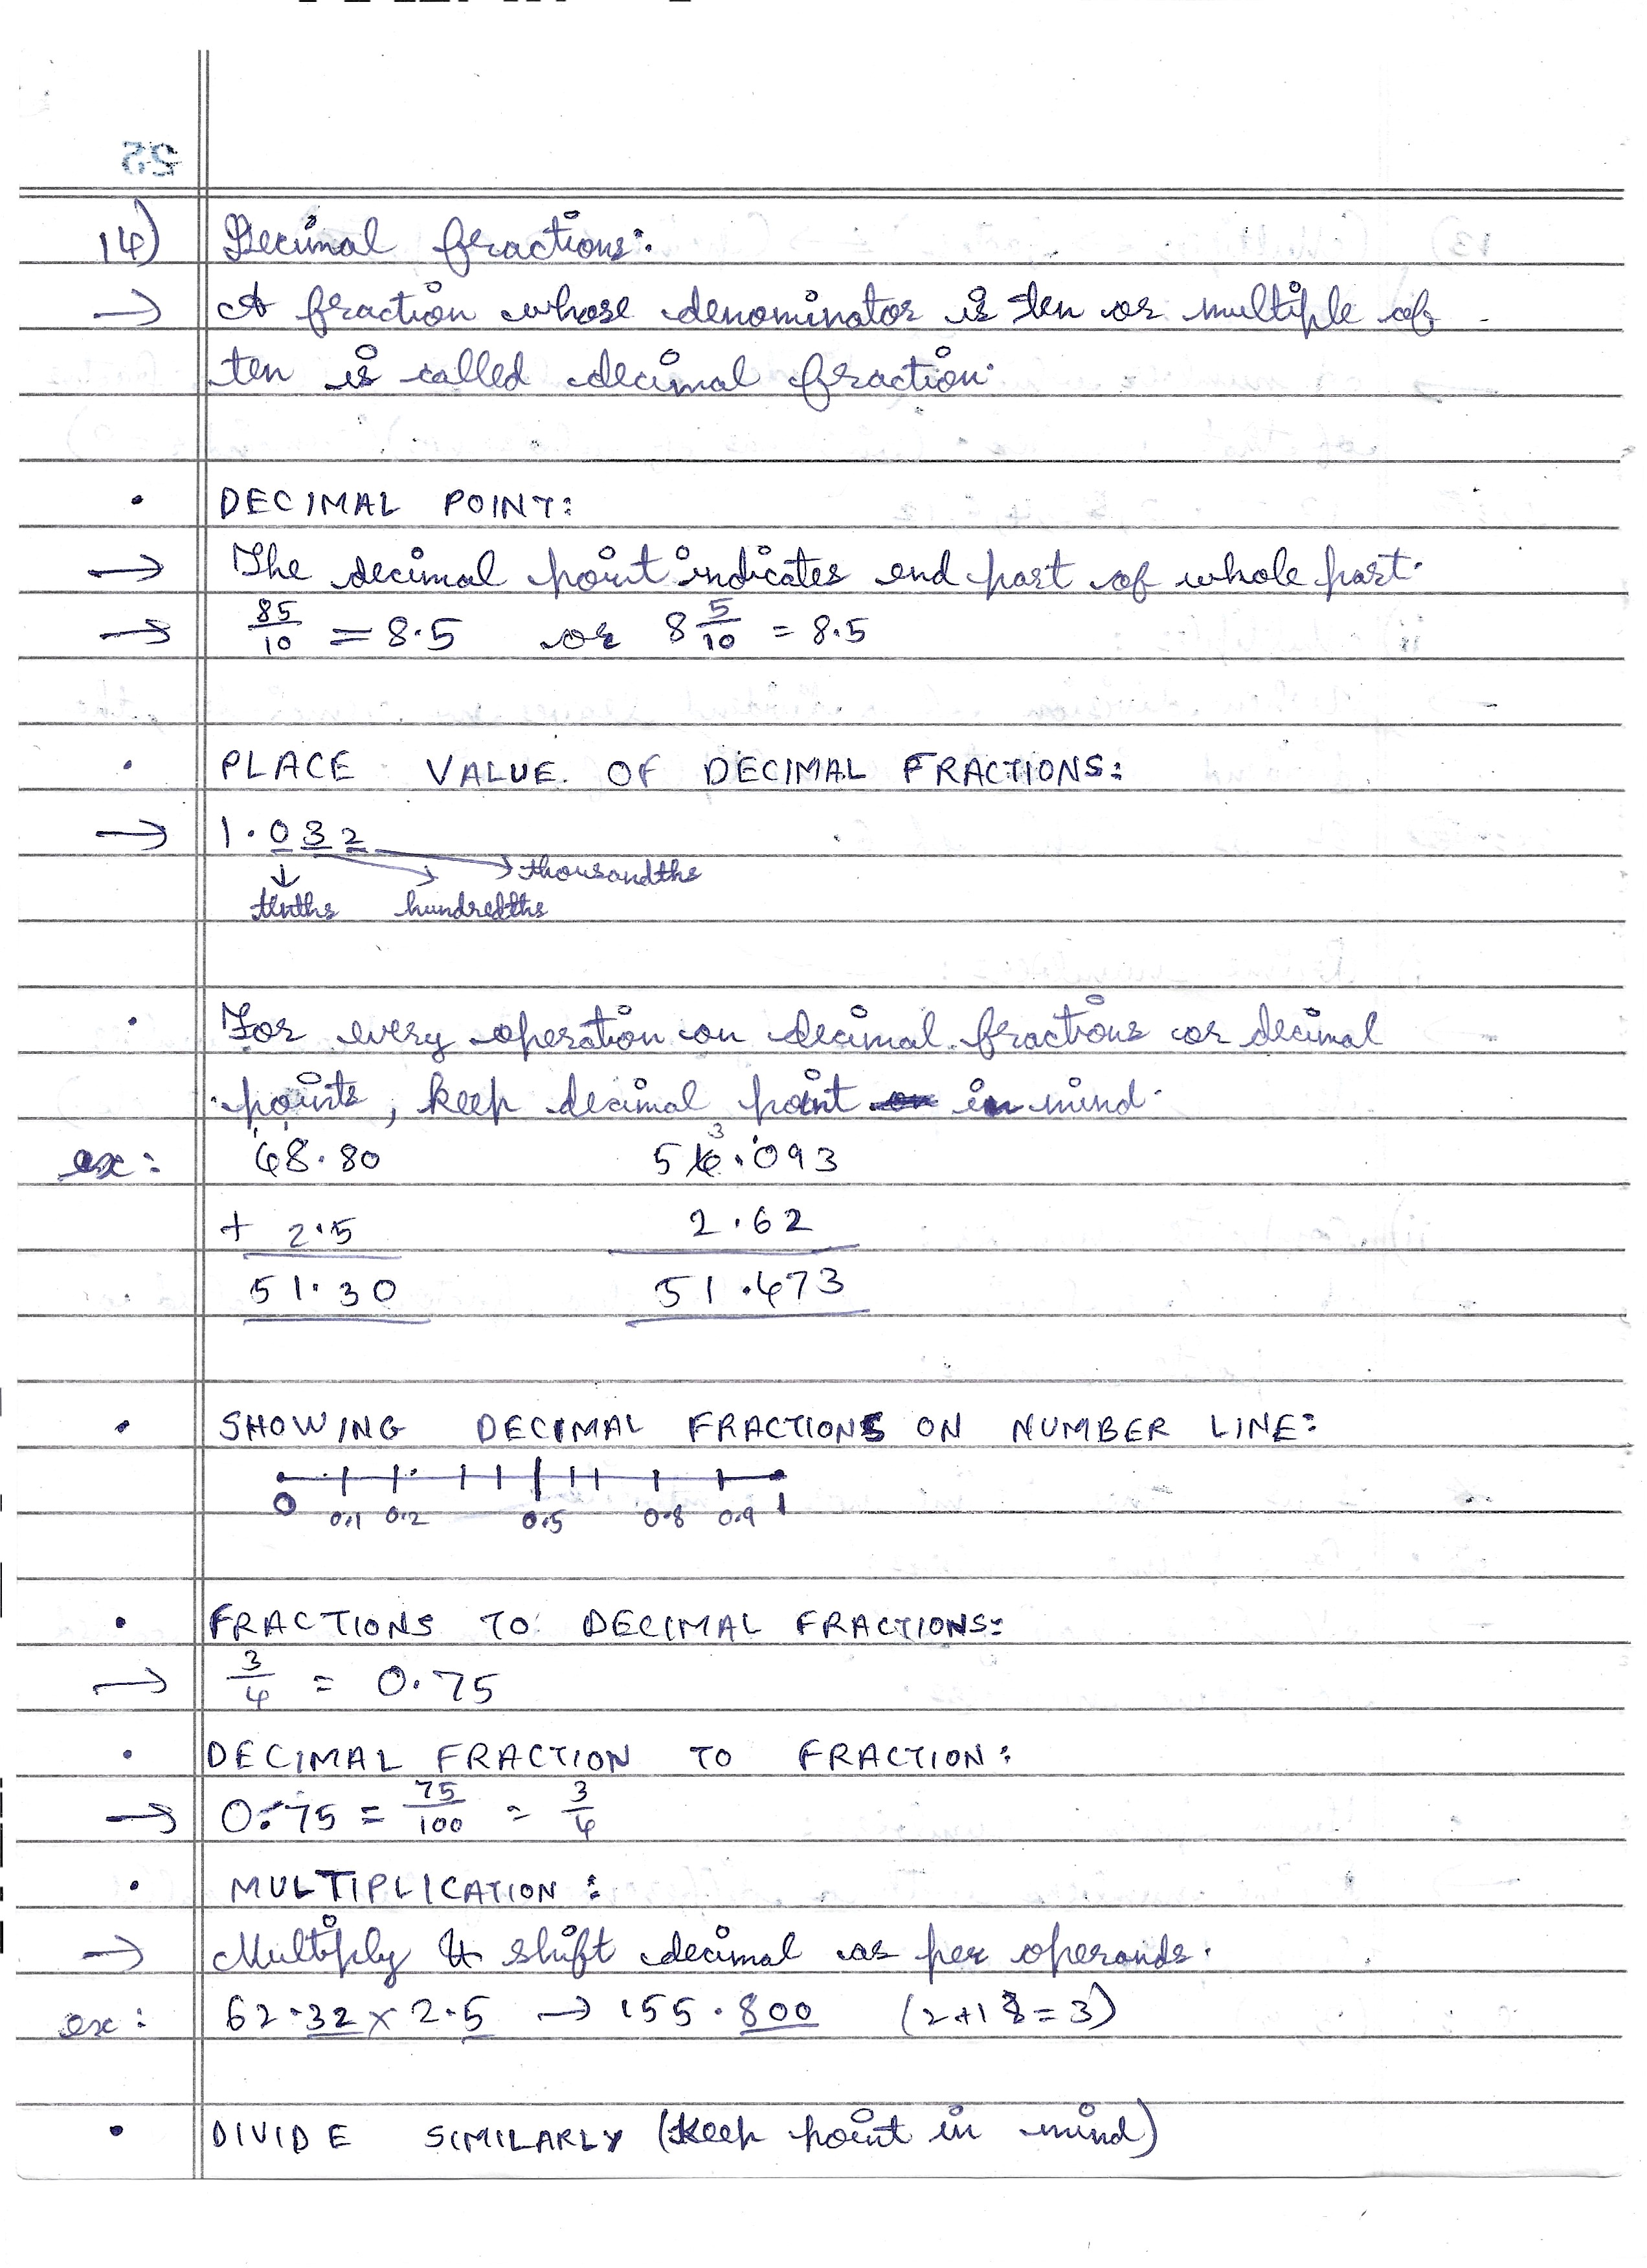 14) Decimal fractions:
→ A fraction whose denominator is ten or multiple of
ten is called decimal fraction.
• DECIMAL POINT:
→ The decimal point indicates end part of whole part.
→ 85/10 = 8.5 or 8 5/10 = 8.5
• PLACE VALUE OF DECIMAL FRACTIONS:
→ 1.032
thousandths
tenths hundredths
• For every operation on decimal fractions or decimal
points, keep decimal point in mind.
ex: 48.80 54.093
+ 2.5 2.62
51.30 51.473
• SHOWING DECIMAL FRACTIONS ON NUMBER LINE:
0 0.1 0.2 0.5 0.8 0.9 1
• FRACTIONS TO DECIMAL FRACTIONS:
→ 3/4 = 0.75
• DECIMAL FRACTION TO FRACTION:
→ 0.75 = 75/100 = 3/4
• MULTIPLICATION:
→ Multiply & shift decimal as per operands.
ex: 62.32 x 2.5 → 155.800 (2+1=3)
• DIVIDE SIMILARLY (Keep point in mind)